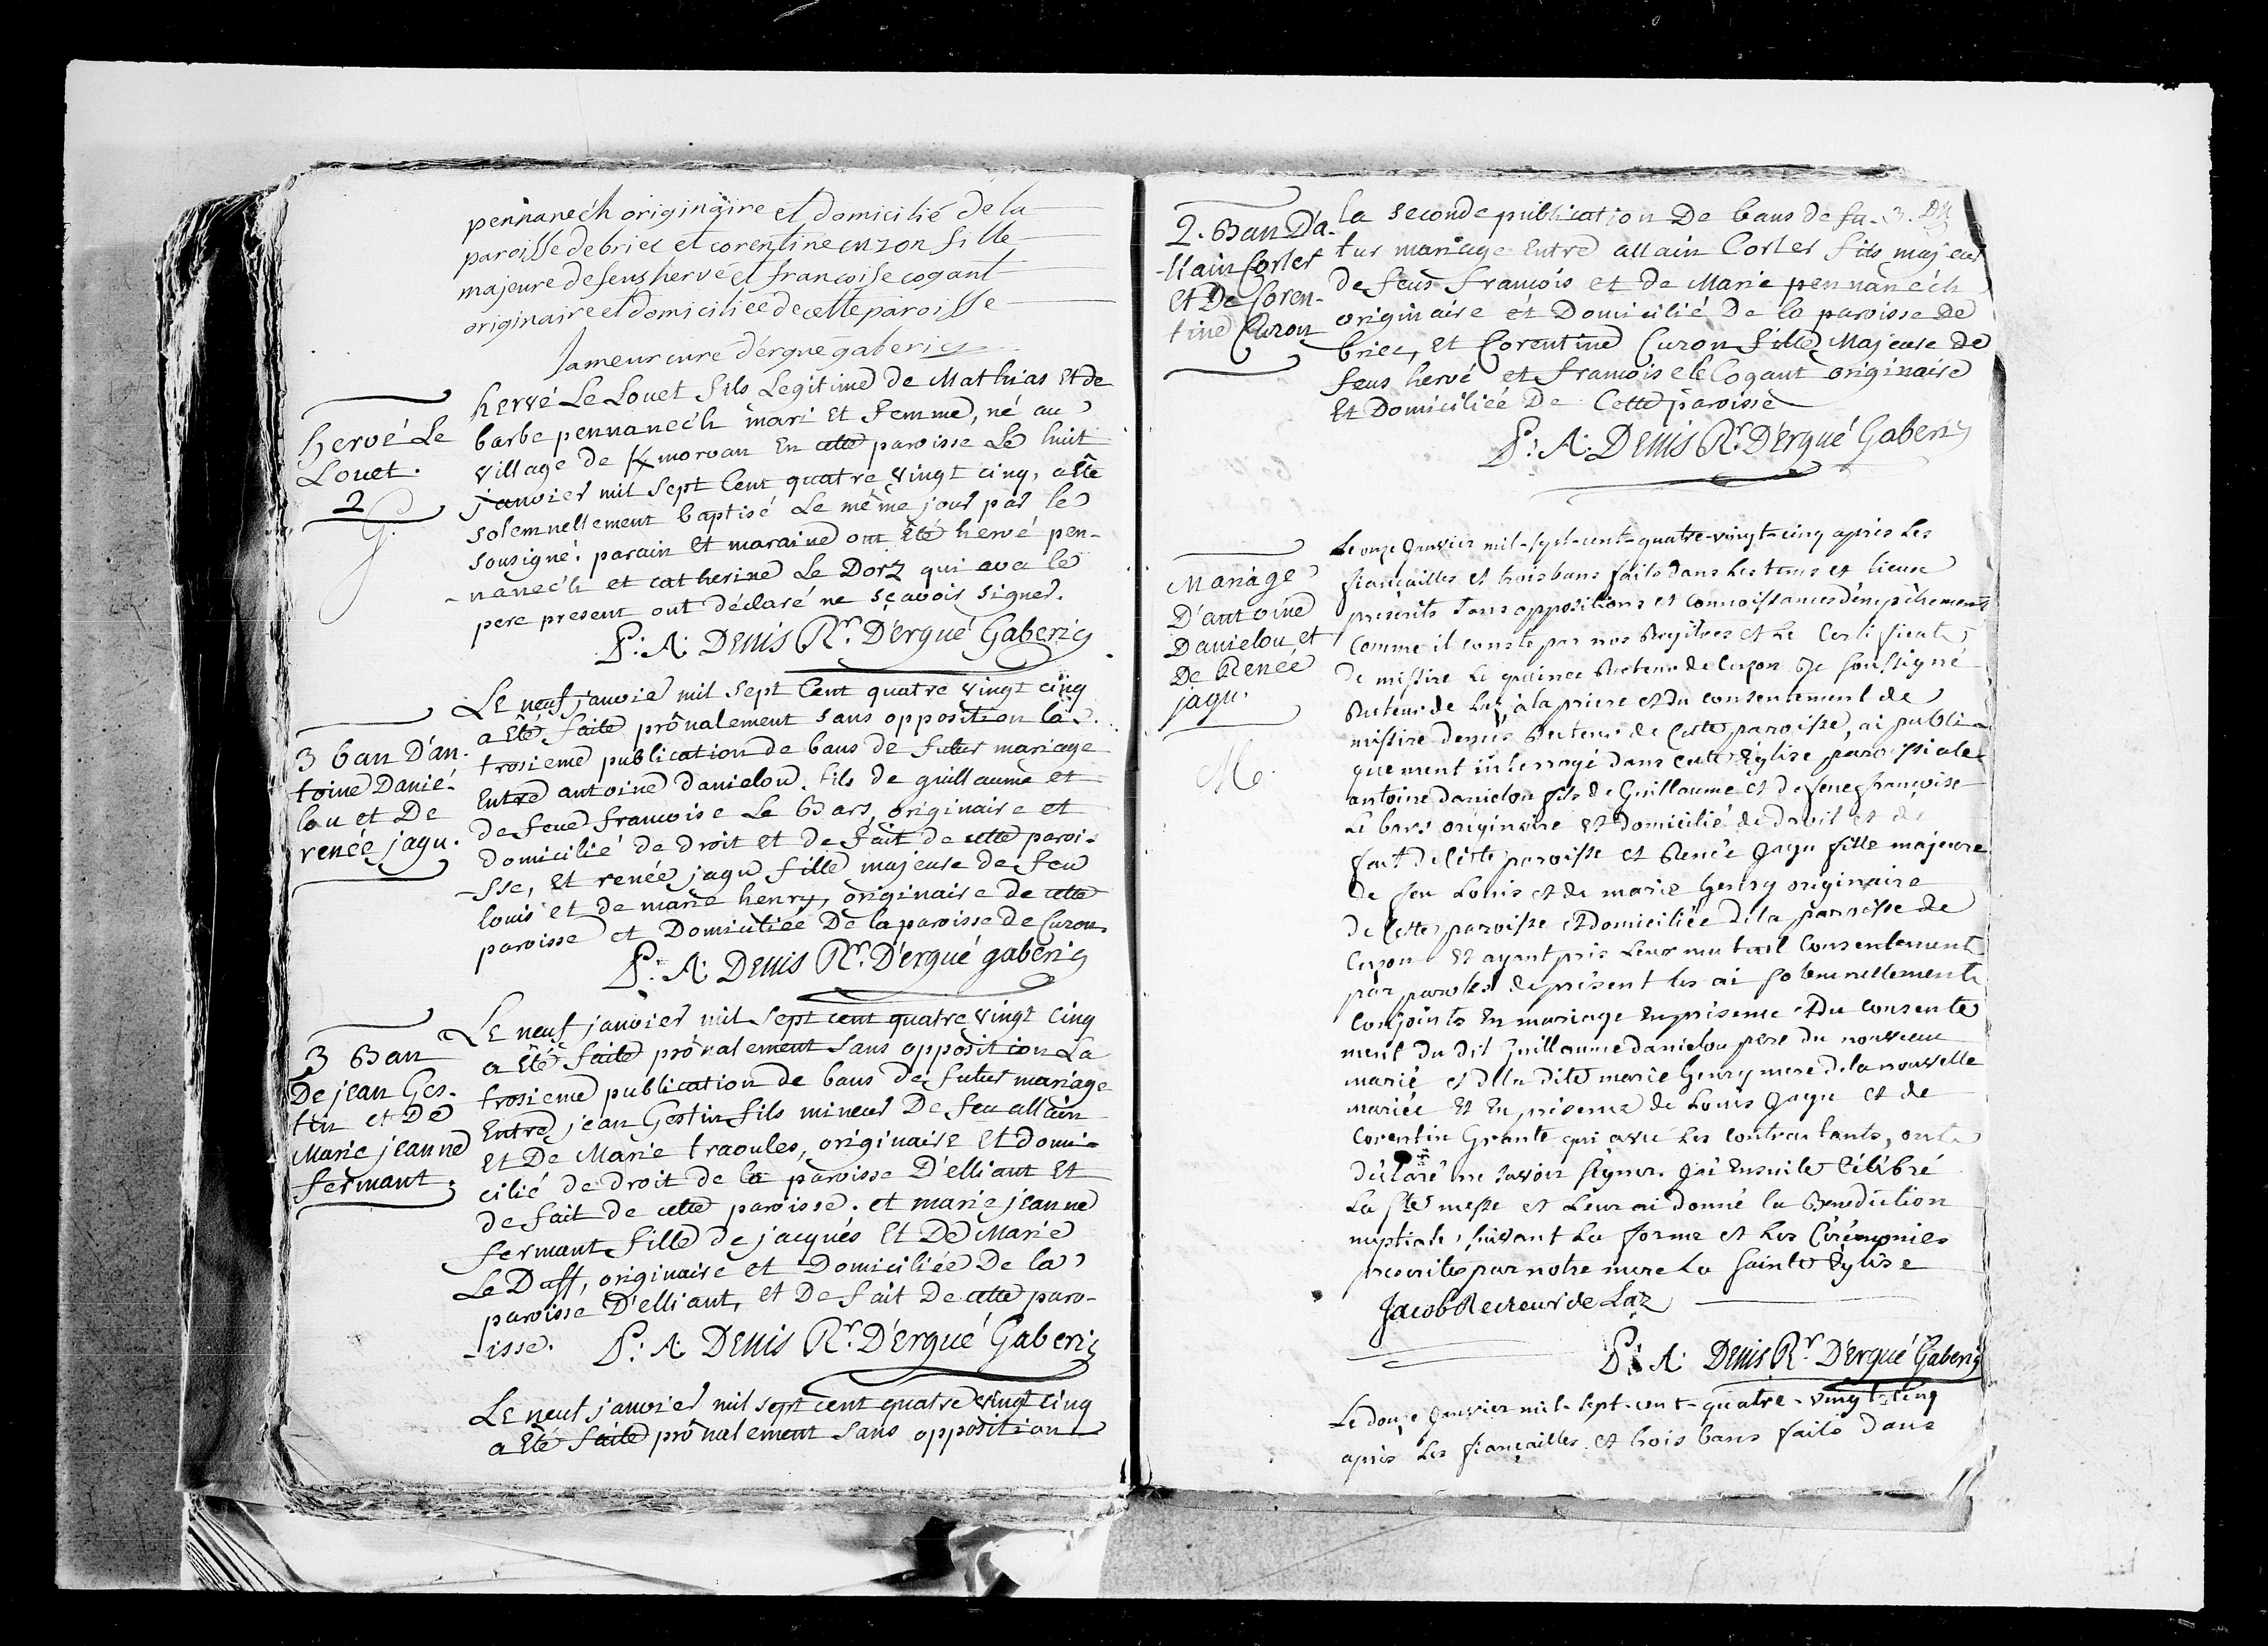 pennanéch originaire et domicilié de la
paroisse de briec et corentine cuzon fille
majeure defeus hervé et francoise cogant
originaire et domiciliée de cette paroisse
Jameur curé d'ergué gaberic
hervé Le
Louet.
2
hervé Le Louet fils Legitime de Mathias Et de
barbe pennanec'h mari Et femme, né au
village de K morvan En cette paroisse Le huit
janvier mil sept Cent quatre vingt cinq, a été
solemnellement baptisé Le même jour par le
sousigné. parain Et maraine ont Eté hervé pen-
-nanec'h et catherine Le Dorz qui avec le
pere present ont déclaré ne sçavoir signer.
P: A: DENIS Rr. D'ergué Gaberic
3 ban D'an-
toine Danié-
lou et De
renée jagu.
LE neuf janvier mil sept Cent quatre vingt cinq
a Eté faite prônalement sans opposition la
troisieme publication de bans de futur mariage
Entre antoine danielou fils de guillaume et
de feue francoise Le Bars, originaire et
domicilié de droit et de fait de cette paroi-
-sse, Et renée jagu fille majeure de feu
louis et de marie henry, originaire de cette
paroisse et Domiciliée De la paroisse de Cuzon.
P: A: DENIS Rr. D'ergué gaberic
3 Ban
De jean Ges-
tin et De
Marie jeanne
fermant.
LE neuf janvier mil sept cent quatre vingt cinq
a Eté faite prônalement sans opposition La
troisieme publication de bans de futur mariage
Entre jean Gestin fils mineur De feu allain
Et De Marie traoules, originaire Et domi-
cilié de droit de la paroisse D'elliant Et
de fait de cette paroisse. et marie jeanne
fermant fille de jacques Et De Marie
Le Daff, originaire et Domiciliée De la
paroisse D'elliant, et De fait De cette paro-
-isse. P: A: DENIS Rr. D'ergué Gaberic
LE neuf janvier mil sept cent quatre vingt cinq
a Eté faite prônalement sans opposition
2. Ban D'a-
-llain Corler
et De Coren-
tine Cuzon
la seconde publication De bans de fu-
tur mariage Entre allain Corler fils majeur
de feus francois et de Marie pennanéch
originaire et Domicilié De la paroisse De
briec, Et Corentine Cuzon fille Majeure de
feus hervé et francoise Cogant originaire
Et Domiciliée De Cette paroisse
P: A: DENIS Rr. D'ergué Gaberic
Mariage
D'antoine
Danielou et
De Renée
jagu.
M.
Le onze Janvier mil-sept-cent-quatre-vingt-cinq après Les
fiançailles et trois bans faits dans Les tems et lieux
prescrits sans oppositions et connoissances d'empêchement
comme il conste par nos Régitres et Le Certificat
de missire Le Recteur de Cuzon Je soussigné
Recteur de Laz à la priere et du consentement de
missire denis Recteur de Cette paroisse, ai publi-
quement interrogé dans cette Eglise paroissiale
antoine Danielou fils de Guillaume et de feue françoise
Le bars originaire et domicilié de droit et de
fait de Cette paroisse et Renée Jagu fille majeure
de feu Louis et de marie henry originaire
de Cette paroisse et domiciliée de la paroisse de
Cuzon Et ayant pris Leur mutuel Consentement
par paroles de présent les ai solemnellement
Conjoints En mariage En présence et Du consente
ment du dit Guillaume danielou pere du nouveau
marié et de la dite marie henry mere de la nouvelle
mariée Et En présence de Louis Jagu et de
Corentin Grante qui avec Les contractants, ont
déclaré ne savoir signer. J'ai Ensuite Célébré
La ste messe et Leur ai donné la Bénédiction
nuptiale, suivant La forme et Les Cérémonies
prescrites par notre mere La Sainte Eglise
Jacob Recteur de Laz
P: A: DENIS Rr D'ergué Gaberic
Le douze Janvier mil-sept-cent-quatre-vingt-cinq
après Les fiançailles et trois bans faits dans